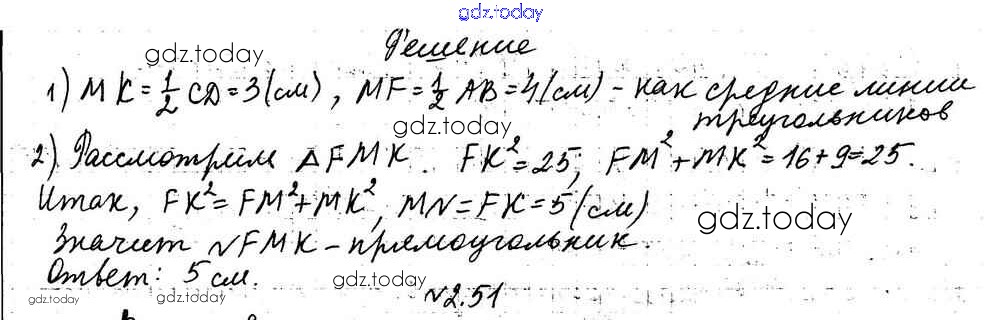 gdz.today
Решение
gdz.today
1) MK = 1/2 CD = 3 (см), MF = 1/2 AB = 4 (см) - как средние линии
треугольников
gdz.today
2) Рассмотрим △FMK. FK² = 25; FM² + MK² = 16 + 9 = 25.
Итак, FK² = FM² + MK², MN = FK = 5 (см)
gdz.today
Значит NFMK - прямоугольник.
Ответ: 5 см.
gdz.today
gdz.today gdz.today
№2.51